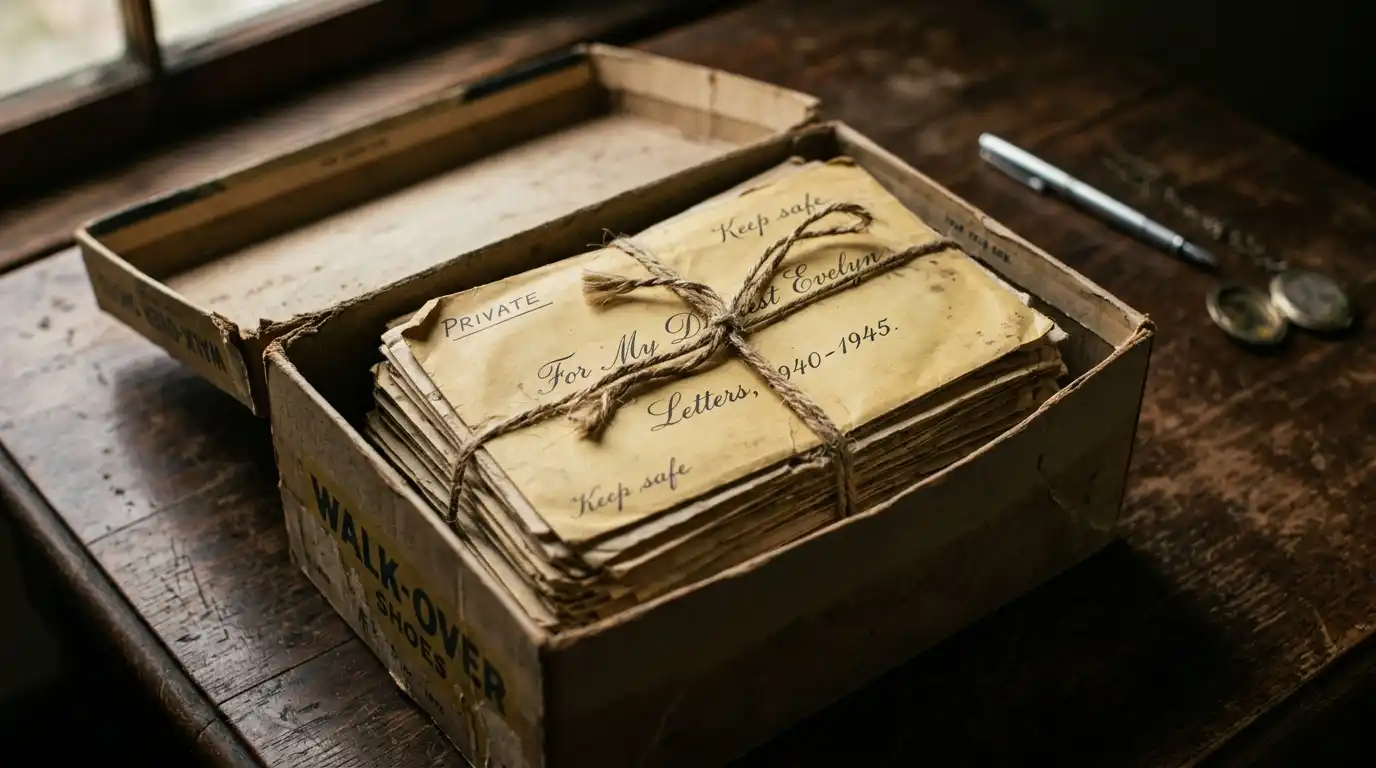 Keep safe
PRIVATE
For My D st Evelyn
Letters, 940-1945.
Keep safe
WALK-OVER
SHOES